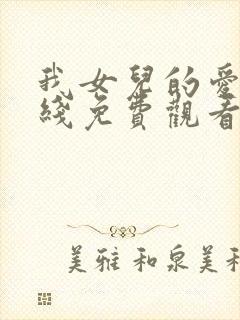 我女兒的愛
綫免費觀看
美雅和泉美和